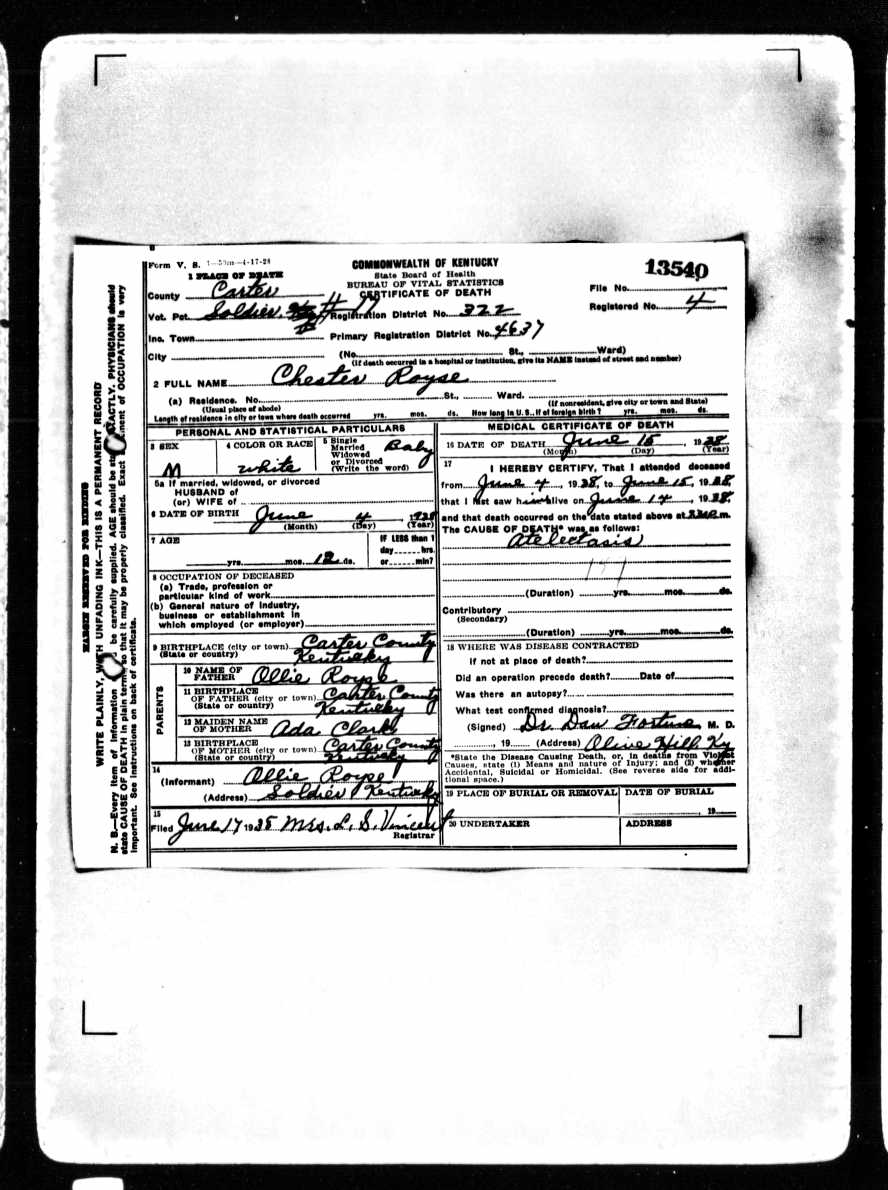 Form V. S. 1—50m—4-17-28
COMMONWEALTH OF KENTUCKY
State Board of Health
BUREAU OF VITAL STATISTICS
CERTIFICATE OF DEATH
13540
File No.
Registered No. 4
1 PLACE OF DEATH
County Carter
Vot. Pct. Soldier # 17 Registration District No. 322
Inc. Town Primary Registration District No. 4637
City (No. St., Ward)
(If death occurred in a hospital or institution, give its NAME instead of street and number)
2 FULL NAME Chester Royse
(a) Residence. No. St., Ward.
(Usual place of abode) (If nonresident, give city or town and State)
Length of residence in city or town where death occurred yrs. mos. ds. How long in U. S., if of foreign birth? yrs. mos. ds.
PERSONAL AND STATISTICAL PARTICULARS
3 SEX
M
4 COLOR OR RACE
white
5 Single
Married
Widowed
or Divorced
(Write the word)
Baby
5a If married, widowed, or divorced
HUSBAND of
(or) WIFE of
6 DATE OF BIRTH June 4, 1928
(Month) (Day) (Year)
7 AGE
yrs. mos. 12 ds.
IF LESS than 1
day hrs.
or min?
8 OCCUPATION OF DECEASED
(a) Trade, profession or
particular kind of work
(b) General nature of industry,
business or establishment in
which employed (or employer)
9 BIRTHPLACE (city or town) Carter County
(State or country) Kentucky
PARENTS
10 NAME OF
FATHER Ollie Royse
11 BIRTHPLACE
OF FATHER (city or town) Carter County
(State or country) Kentucky
12 MAIDEN NAME
OF MOTHER Ada Clark
13 BIRTHPLACE
OF MOTHER (city or town) Carter County
(State or country) Kentucky
14
(Informant) Ollie Royse
(Address) Soldier Kentucky
15
Filed June 17 1928 Mrs. L. S. Vincent
Registrar
MEDICAL CERTIFICATE OF DEATH
16 DATE OF DEATH June 15, 1928
(Month) (Day) (Year)
17
I HEREBY CERTIFY, That I attended deceased
from June 4, 1928, to June 15, 1928
that I last saw him alive on June 14, 1928,
and that death occurred on the date stated above at m.
The CAUSE OF DEATH* was as follows:
Atelectasis
(Duration) yrs. mos. ds.
Contributory
(Secondary)
(Duration) yrs. mos. ds.
18 WHERE WAS DISEASE CONTRACTED
If not at place of death?
Did an operation precede death? Date of
Was there an autopsy?
What test confirmed diagnosis?
(Signed) Dr. Dan Fortune, M. D.
, 19 (Address) Olive Hill Ky
*State the Disease Causing Death, or, in deaths from Violent
Causes, state (1) Means and nature of Injury; and (2) whether
Accidental, Suicidal or Homicidal. (See reverse side for addi-
tional space.)
19 PLACE OF BURIAL OR REMOVAL
DATE OF BURIAL
, 19
20 UNDERTAKER
ADDRESS
MARGIN RESERVED FOR BINDING
WRITE PLAINLY, WITH UNFADING INK—THIS IS A PERMANENT RECORD
N. B.—Every item of information be carefully supplied. AGE should be EXACTLY. PHYSICIANS should
state CAUSE OF DEATH in plain terms so that it may be properly classified. Exact statement of OCCUPATION is very
important. See instructions on back of certificate.